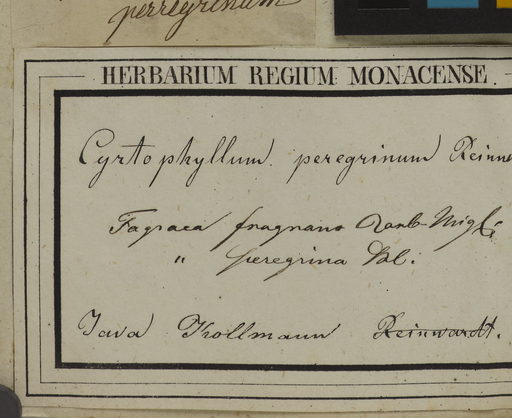 perregrinum
HERBARIUM REGIUM MONACENSE.
Cyrtophyllum peregrinum Reinw
Fagraea fragrans Roxb.
" peregrina Bl.
Java Kollmann Reinwardt.